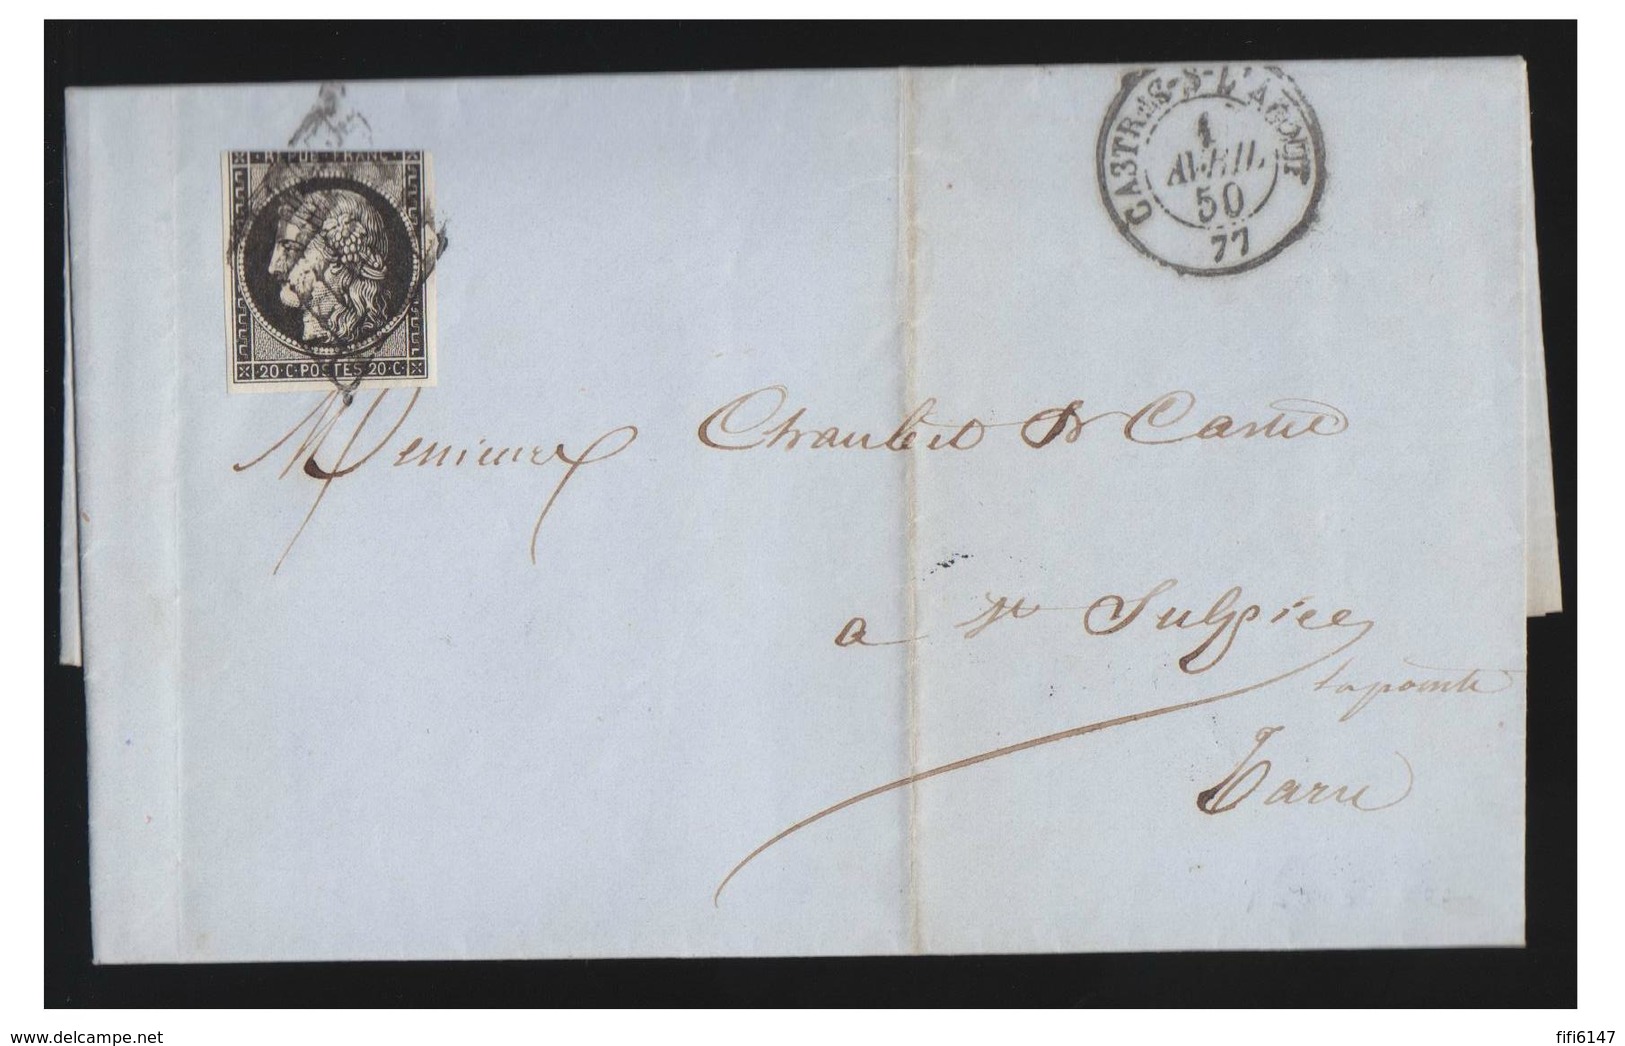 REPUB·FRANC·
20·C·POSTES 20·C·
CASTRES-S-L'AGOUT
1
AVRIL
50
77
Messieurs Chaubet & Carrié
a St Sulpice
lapointe
Tarn
www.delcampe.net
fifi6147